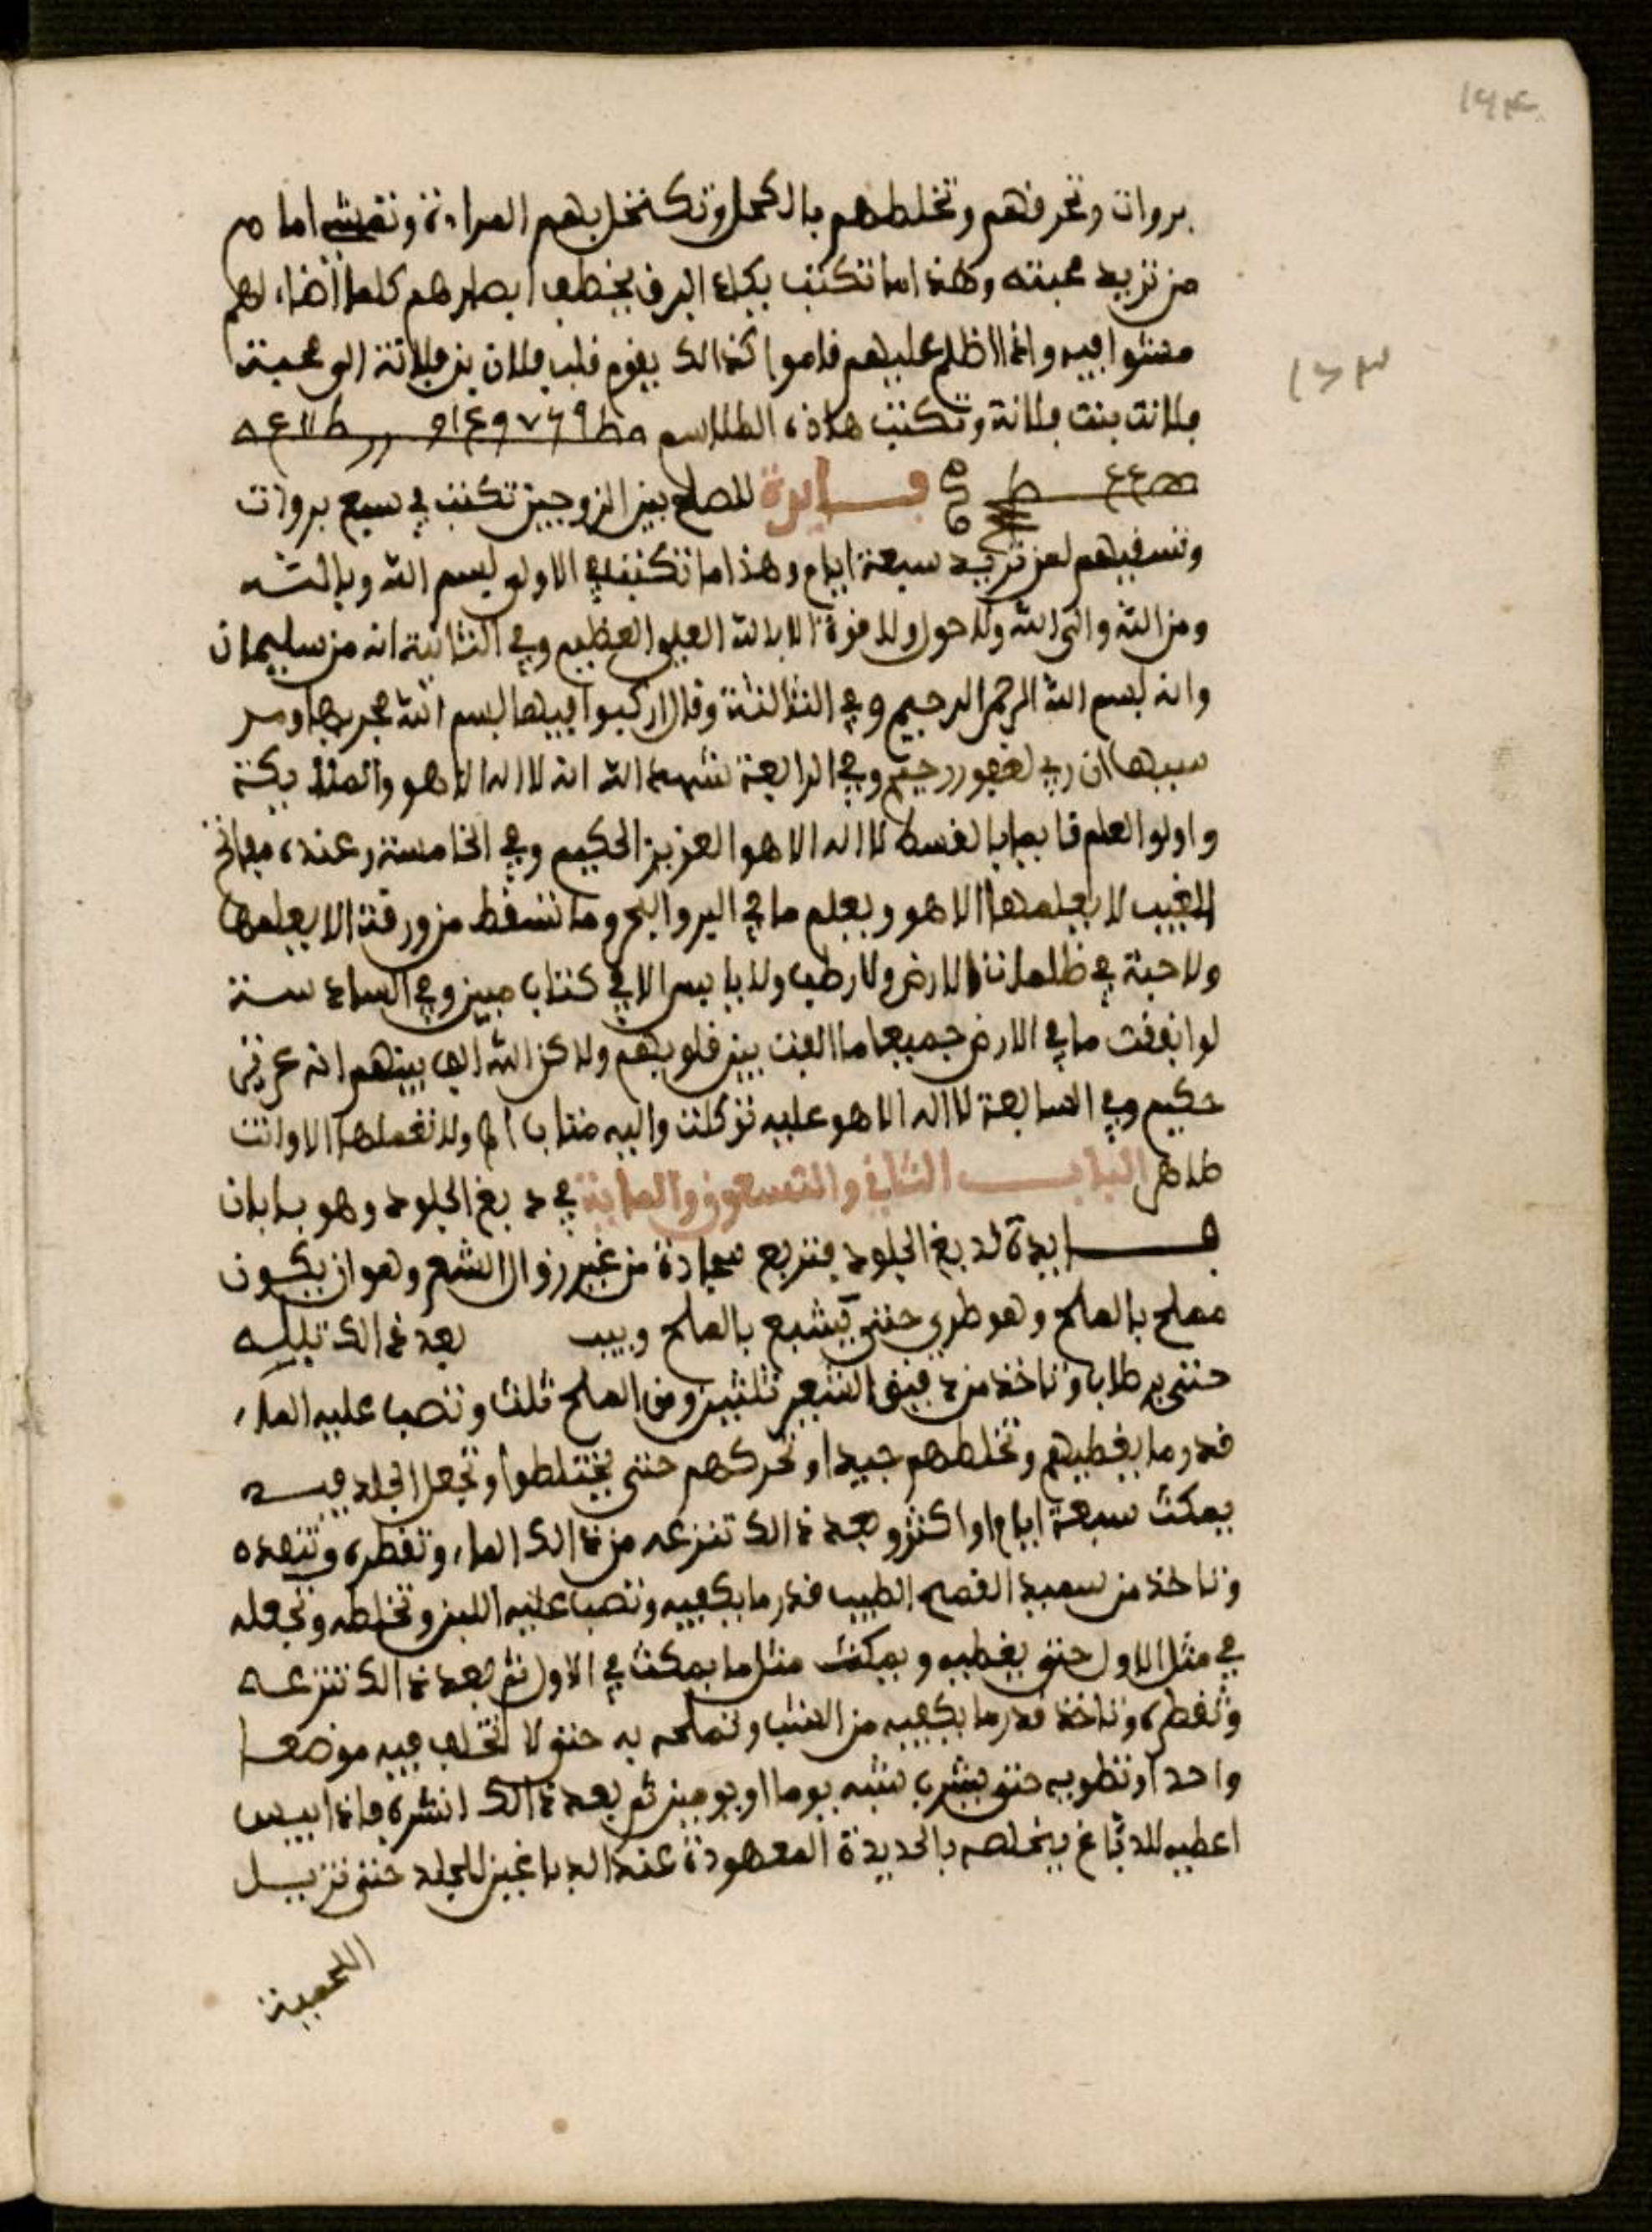 ١٦٤
بروات وتحرقهم وتخلطهم بالكحل وتكتحل بهم المراءة وتمشي امام
من تريد محبته وهذا ما تكتب يكاد البرق يخطف ابصارهم كلما اضاء لهم
مشوا فيه واذا اظلم عليهم قاموا كذالك يقوم قلب فلان بن فلانة الى محبة
١٦٣
فلانت بنت فلانة وتكتب هاذه الطلاسم
فايدة للصلح بين الزوجين تكتب في سبع بروات
وتسقيهم لمن تريد سبعة ايام وهذا ما تكتب في الاولى بسم الله وبالله
ومن الله والى الله ولا حول ولا قوة الا بالله العلي العظيم وفي الثانية انه من سليمان
وانه بسم الله الرحمن الرحيم وفي الثالثة وقال اركبوا فيها بسم الله مجريها ومر
سيها ان ربي لغفور رحيم وفي الرابعة شهد الله انه لا اله الا هو والملايكة
واولوا العلم قايما بالقسط لا اله الا هو العزيز الحكيم وفي الخامسة وعنده مفاتح
الغيب لا يعلمها الا هو ويعلم ما في البر والبحر وما تسقط من ورقة الا يعلمها
ولا حبة في ظلمات الارض ولا رطب ولا يابس الا في كتاب مبين وفي السادسة
لو انفقت ما في الارض جميعا ما الفت بين قلوبهم ولاكن الله الف بينهم انه عزيز
حكيم وفي السابعة لا اله الا هو عليه توكلت واليه متاب ولا تفعلها الا وانت
طاهر الباب الثاني والتسعون والماية في دبغ الجلود وهو بابان
فايدة لدبغ الجلود فتربع سجادة من غير زوال الشعر وهو ان يكون
مملح بالملح وهو طري حتى يشبع بالملح ويبب بعد ذالك تبله
حتى يرطاب وتاخذ من دقيق الشعير ثلثين ومن الملح ثلث وتصب عليه الماء
قدر ما يغطيهم وتخلطهم جيدا وتحركهم حتى يختلطوا وتجعل الجلد فيه
يمكث سبعة ايام او اكثر وبعد ذالك تنزعه من ذالك الماء وتقطره وتنفده
وتاخذ من سميد القمح الطيب قدر ما يكفيه وتصب عليه اللبن وتخلطه وتجعله
في مثل الاول حتى يغطيه ويمكث مثل ما يمكث في الاول ثم بعد ذالك تنزعه
وتقطره وتاخذ قدر ما يكفيه من الشب وتملحه به حتى لا تخلف فيه موضعا
واحدا وتطويه حتى يشرب شبه يوما او يومين ثم بعد ذالك انشره فاذا يبس
اعطيه للدباغ يخلصه بالحديدة المعهودة عند الدباغين للجلد حتى تزيل
اللحمية